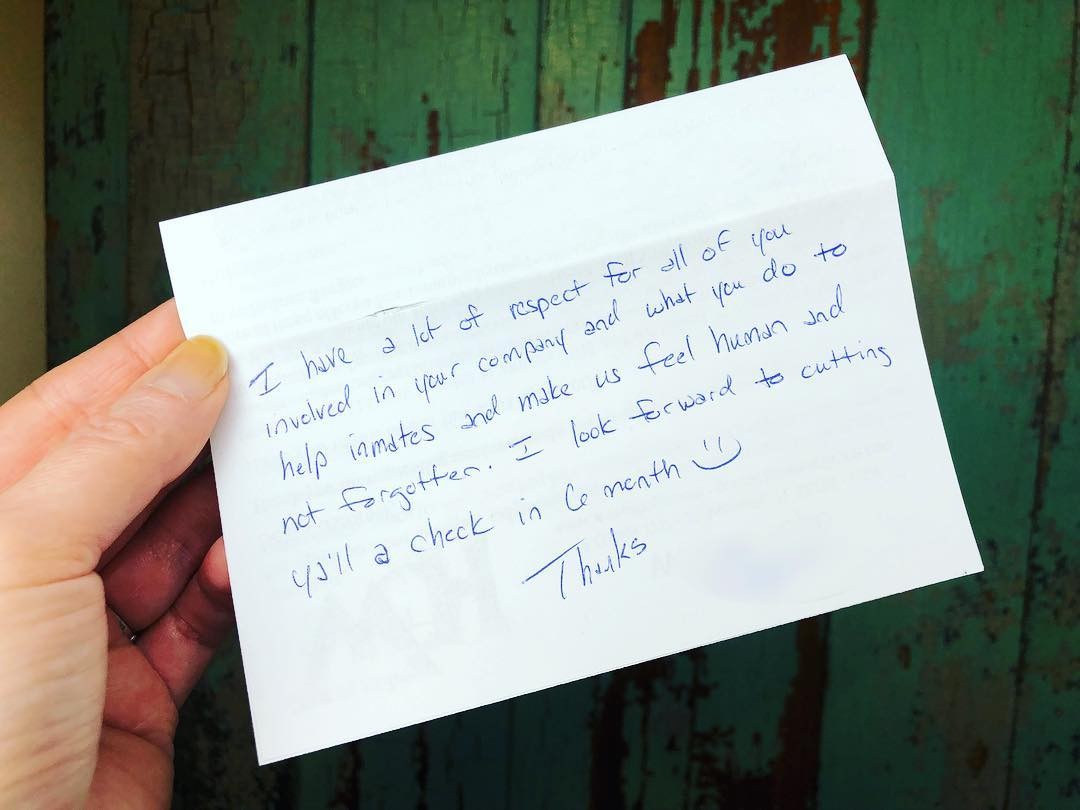 I have a lot of respect for all of you
involved in your company and what you do to
help inmates and make us feel human and
not forgotten. I look forward to cutting
ya'll a check in 6 month :)
Thanks